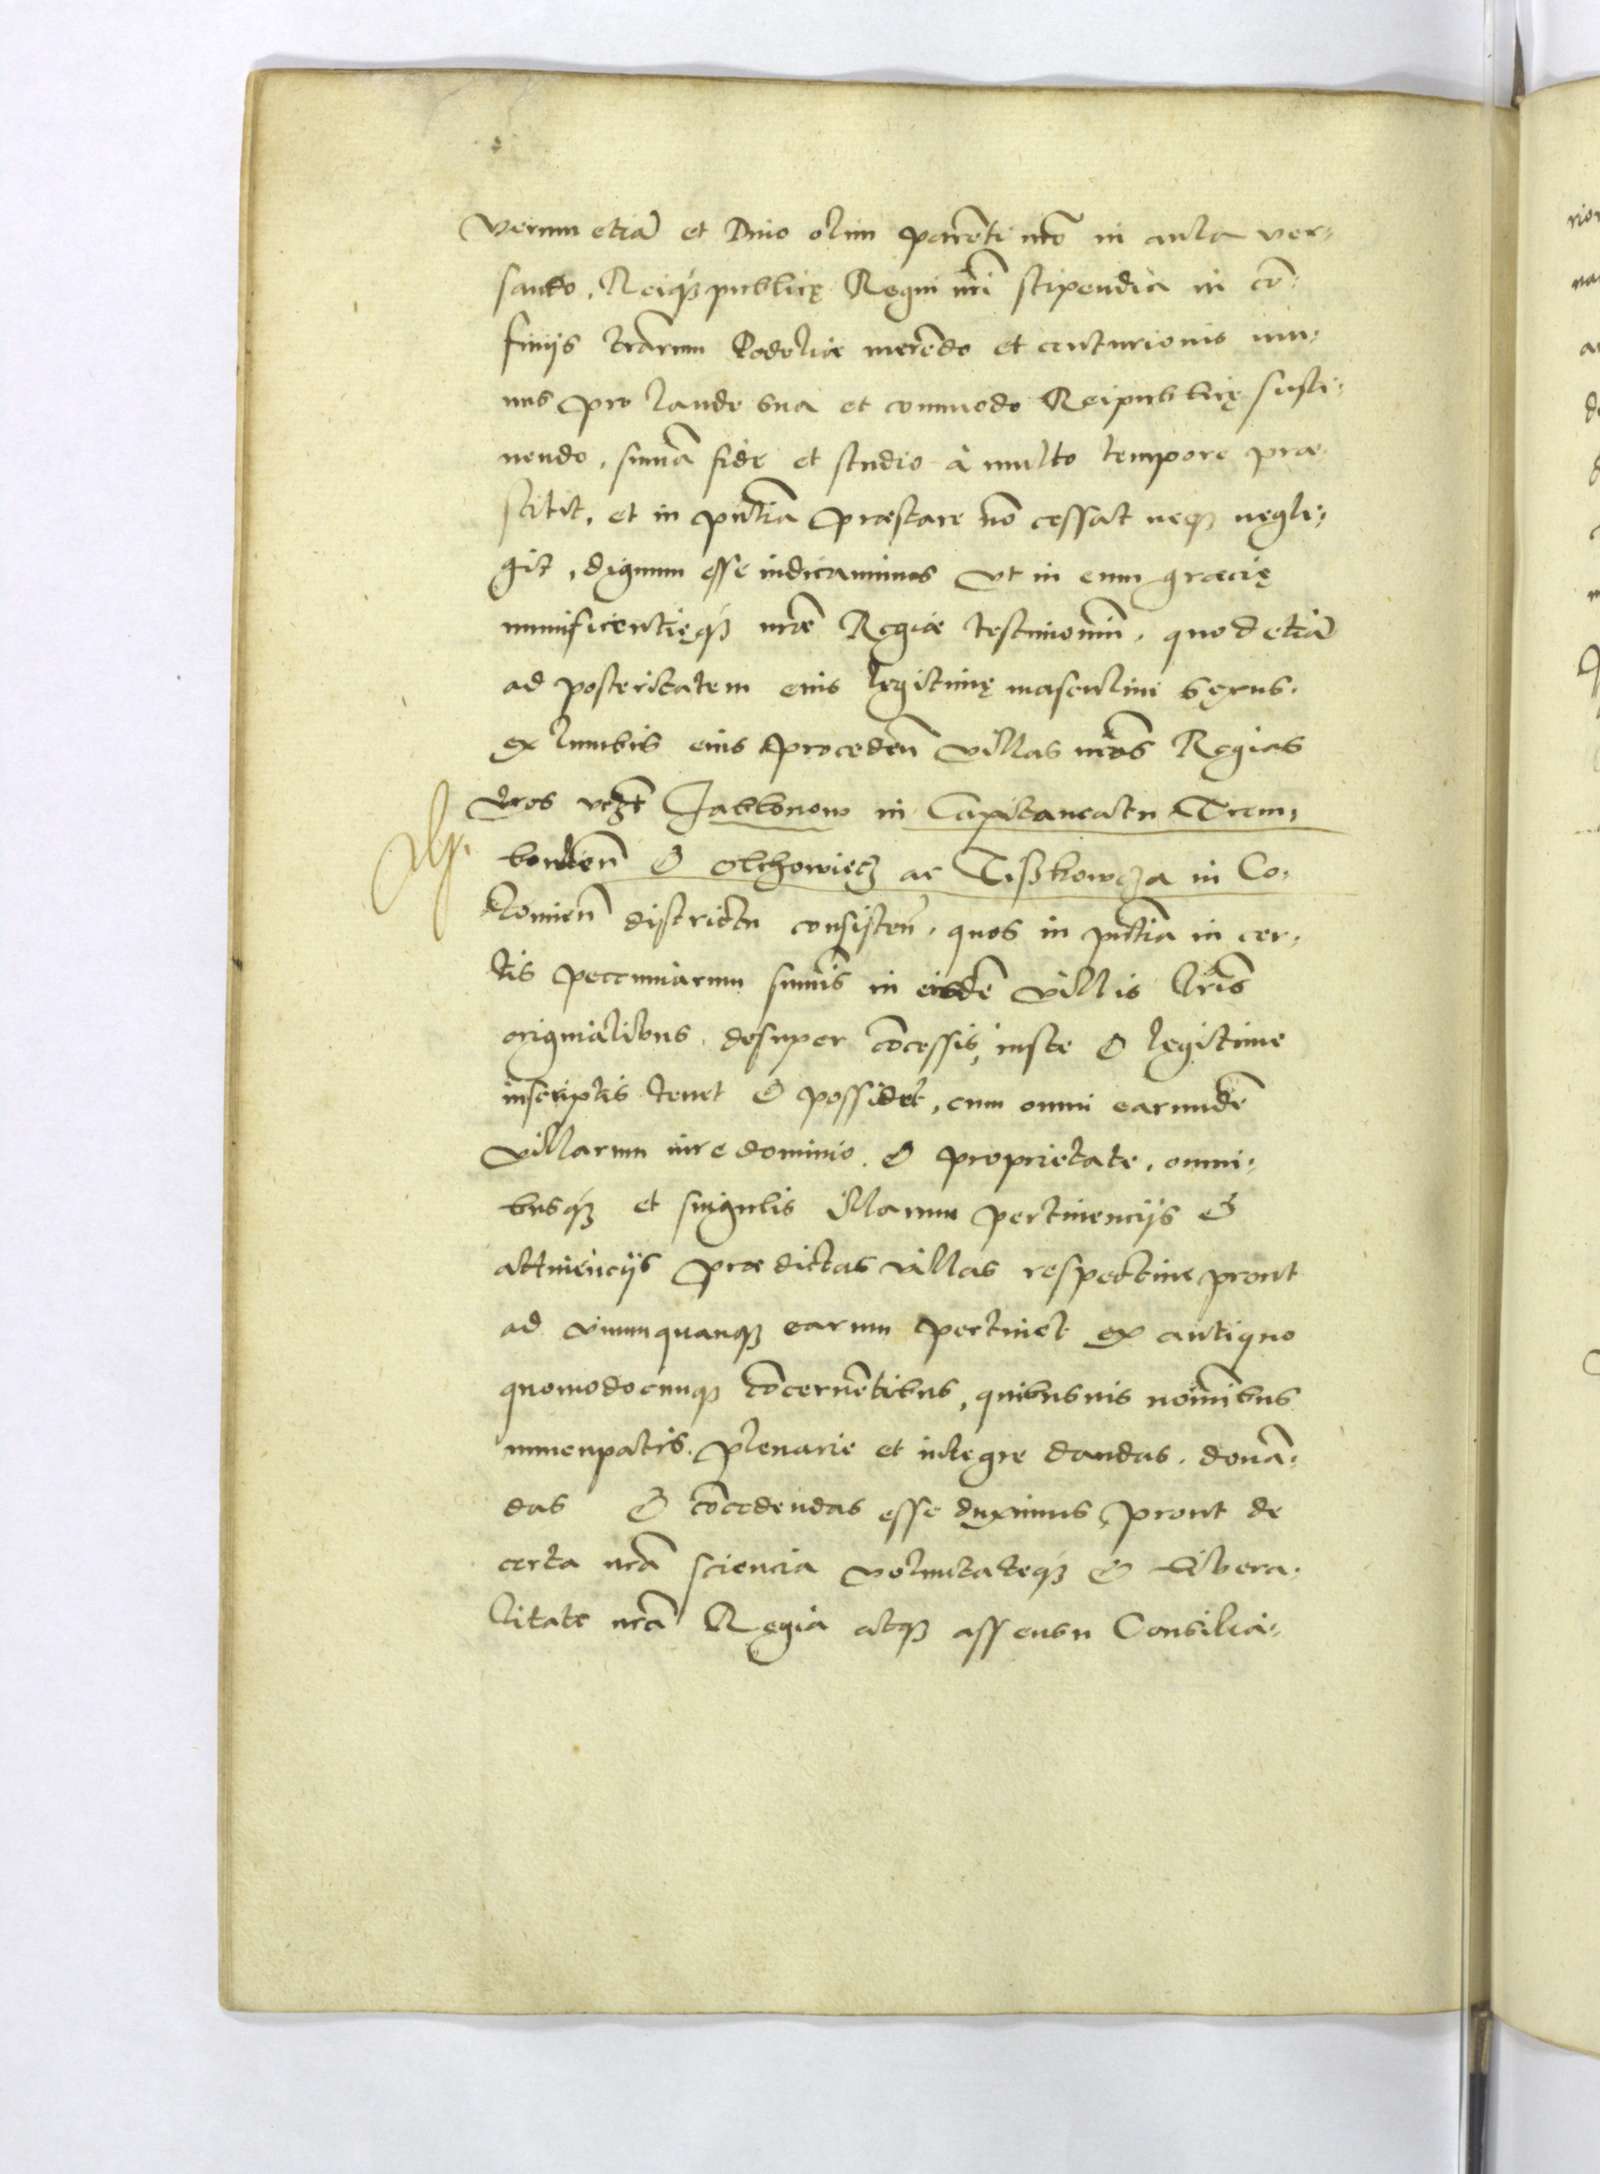 Verum etiã et Diuo olim parẽti nrõ in aula ver=
sando, Reiq3 publicę Regni nr̃i stipendia in cõ=
finijs tr̃arum Podoliæ merẽdo et centurionis mu=
nus pro laude sua et commodo Reipublicę susti=
nendo, sum̃a fide et studio à multo tempore præ
stitit, et in pñtia præstare nõ cessat neq3 negli=
git, dignum esse iudicauimus vt in eum gracię
munificentięq3 nr̃æ Regiæ testimoniũ, quod etiã
ad posteritatem eius legitimę masculini sexus
ex lumbis eius proceden̄ villas nr̃as Regias
tres vczt Jablonow in Capitaneatu Trem=
bowlien̄ & Olchowiecz ac Tißkowcza in Co=
lomien̄ districtu consisten̄, quas in pñtia in cer=
tis pecuniarum sum̃is in eisdẽ villis lr̃is
originalibus desuper cõcessis, iuste & legitime
inscriptis tenet & possidet, cum omni earundẽ
villarum iure dominio & proprietate, omni=
busq3 et singulis illarum pertinencijs &
attinencijs prædictas villas respectiue prout
ad vnumquanq3 earum pertinet ex antiquo
quomodocunq3 cõcernẽtibus, quibusuis noĩnibus
nuncupatis, plenarie et integre dandas, donã=
das & cõcedendas esse duximus, prout de
certa nr̃a sciencia voluntateq3 & libera=
litate nr̃a Regia atq3 assensu Consilia=